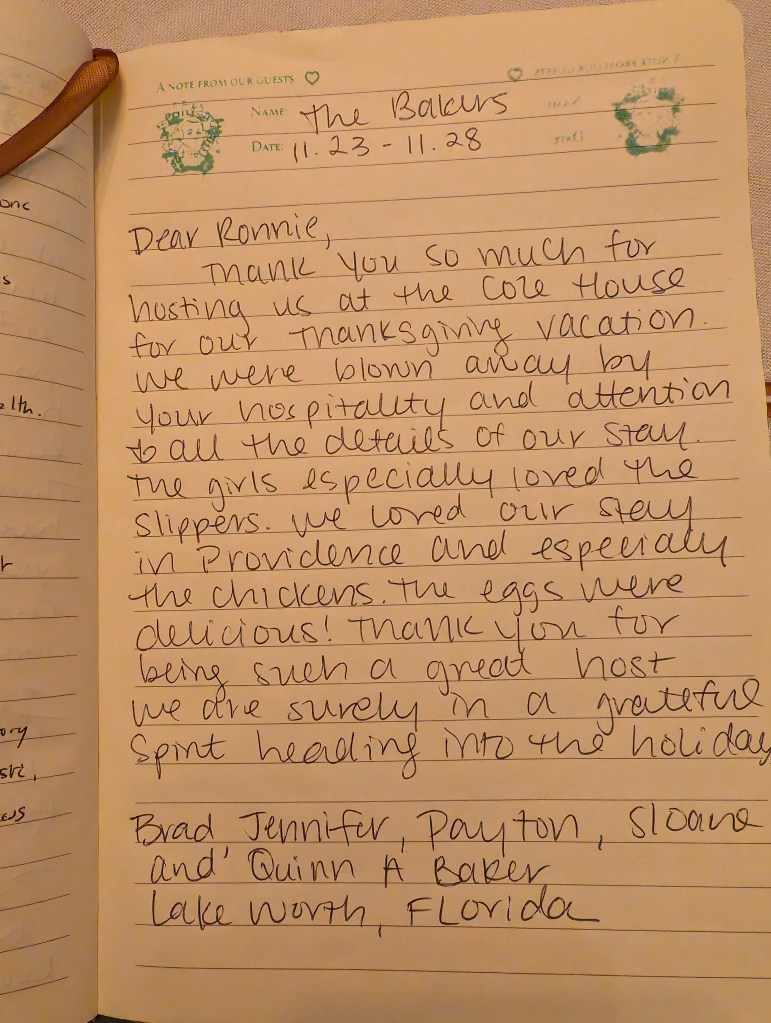 A NOTE FROM OUR GUESTS
NAME: The Bakers
DATE: 11.23 - 11.28
Dear Ronnie,
Thank you so much for
hosting us at the Cole House
for our Thanksgiving vacation.
We were blown away by
your hospitality and attention
to all the details of our stay.
The girls especially loved the
slippers. We loved our stay
in Providence and especially
the chickens. The eggs were
delicious! Thank you for
being such a great host
We are surely in a grateful
Spirit heading into the holiday
Brad Jennifer, Payton, Sloane
and Quinn A Baker
Lake Worth, Florida
one
s
alth.
r
ory